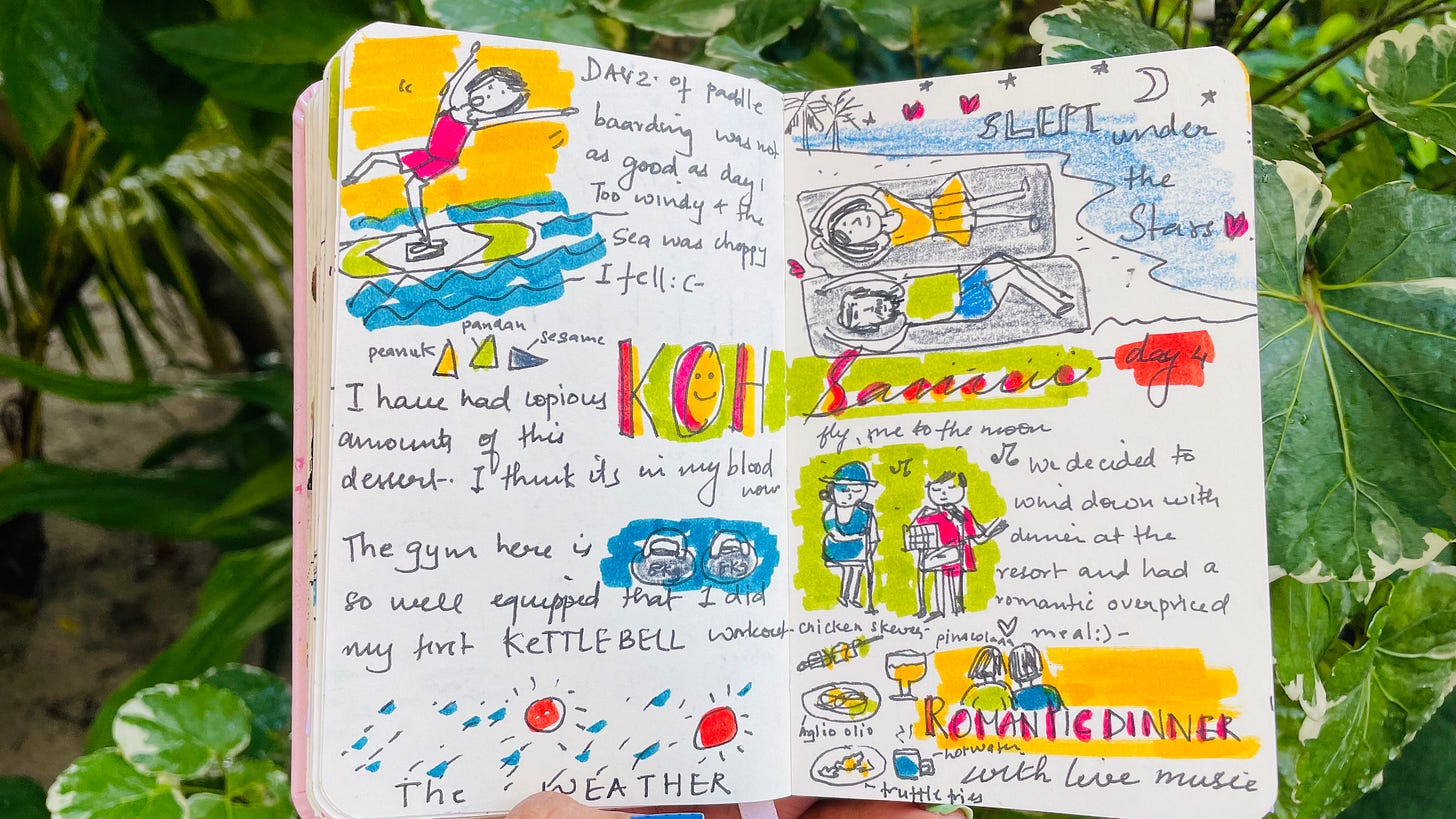 DAY 2. of paddle
baarding was not
as good as day 1
Too windy + the
Sea was choppy
I fell :C-
pandan
peanuk
sesame
I have had copious
amounts of this
dessert. I think its in my blood
now
The gym here is
so well equipped that I did
my first KETTLEBELL workout-
The WEATHER
SLEPT under
the
Stars
KOH Samui - day 4
fly, me to the moon
we decided to
wind down with
dinner at the
resort and had a
romantic overpriced
meal :) -
chicken skewers-
pinacolada
Aglio olio
ROMANTIC DINNER
- hot water
with live music
- truffle fries